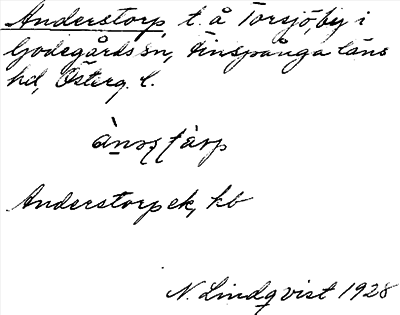 Anderstorp, t. å Torsjö, by i
Godegårds sn, Finspånga läns
hd, Österg. l.
Anderstorp ek, kb
N. Lindqvist 1928